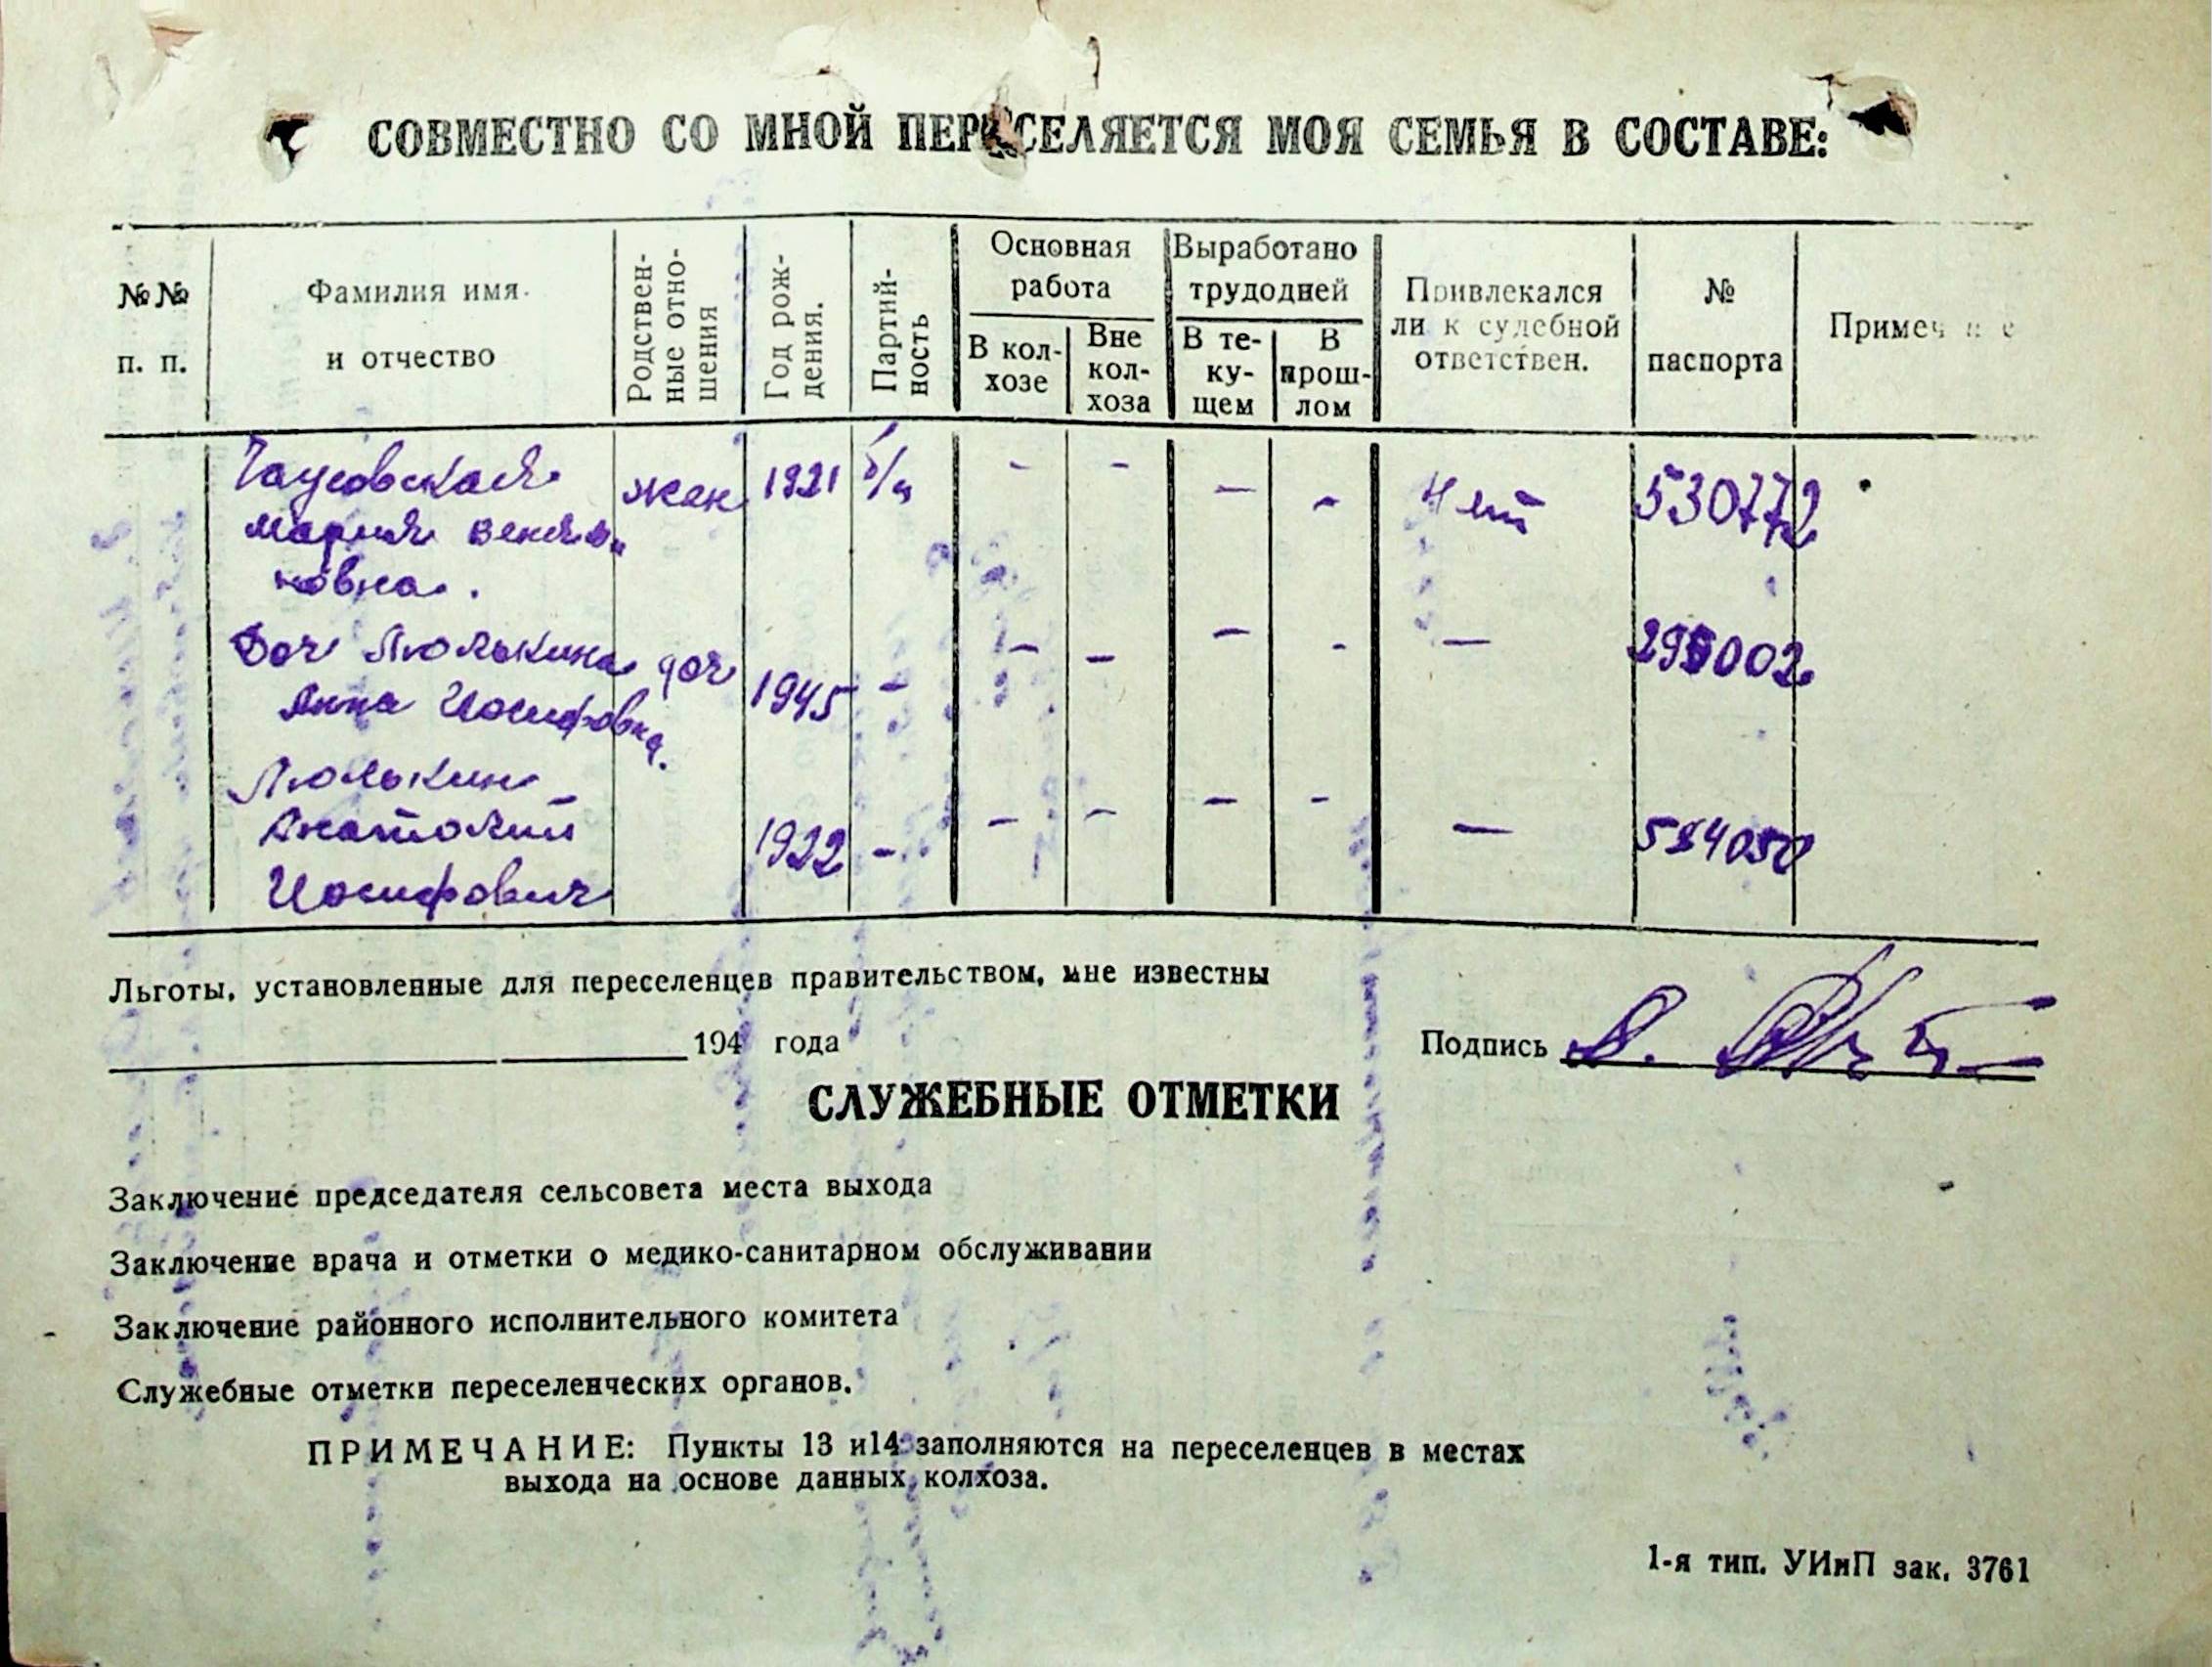 СОВМЕСТНО СО МНОЙ ПЕРЕСЕЛЯЕТСЯ МОЯ СЕМЬЯ В СОСТАВЕ:
№№ п. п.
Фамилия имя и отчество
Родствен-ные отно-шения
Год рож-дения.
Партий-ность
Основная работа
В кол-хозе
Вне кол-хоза
Выработано трудодней
В те-ку-щем
В прош-лом
Привлекался ли к судебной ответствен.
№ паспорта
Примеч
жен 1921 б/п - - - - нет 530772
Мария Вениами
новна.
Доч Люлькина доч 1945 - - - - - -
Анна Иосифовна.
Люлькин
Анатолий 1922 - - - - - -
Иосифович
Льготы, установленные для переселенцев правительством, мне известны
194 года
Подпись
СЛУЖЕБНЫЕ ОТМЕТКИ
Заключение председателя сельсовета места выхода
Заключение врача и отметки о медико-санитарном обслуживании
Заключение районного исполнительного комитета
Служебные отметки переселенческих органов.
ПРИМЕЧАНИЕ: Пункты 13 и14 заполняются на переселенцев в местах
выхода на основе данных колхоза.
1-я тип. УИиП зак. 3761